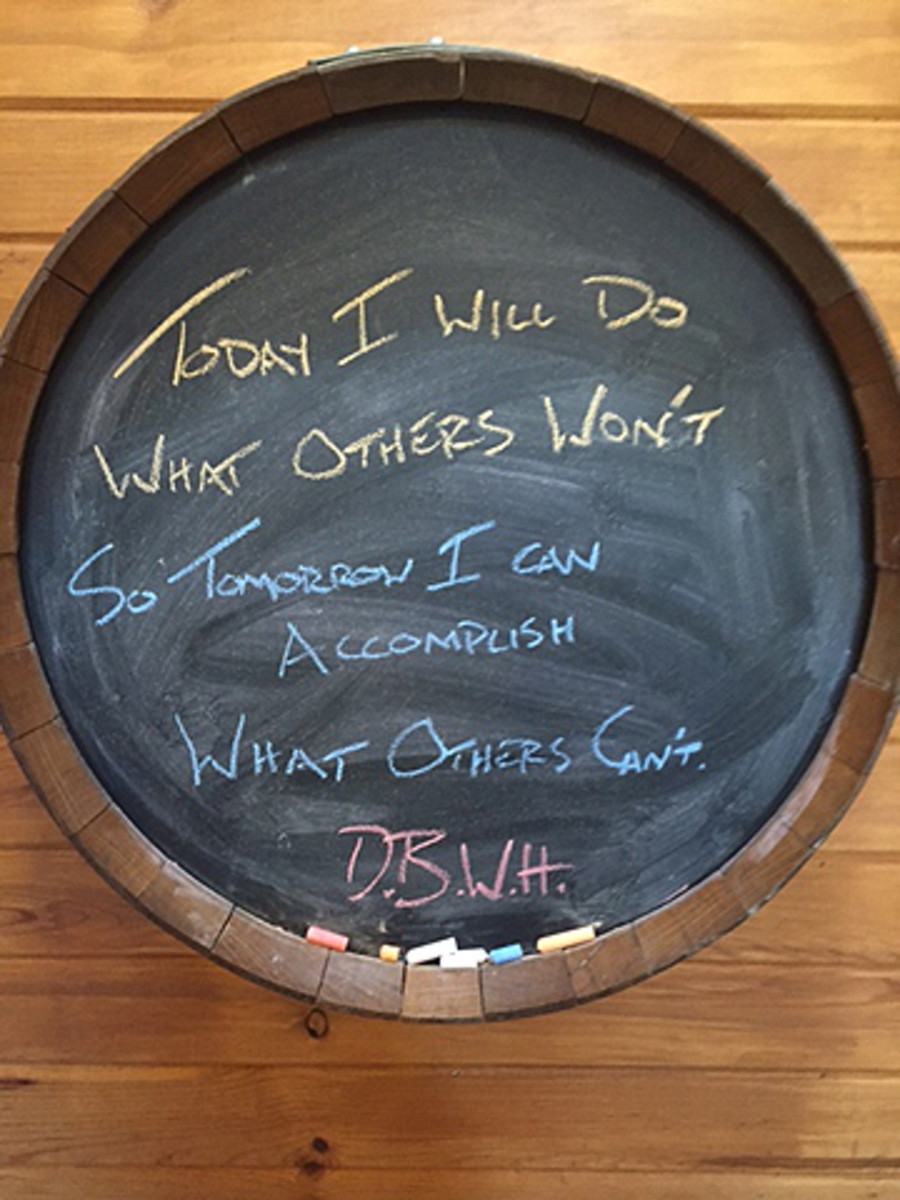 Today I Will Do
What Others Won't
So Tomorrow I can
Accomplish
What Others Can't.
D.B.W.H.